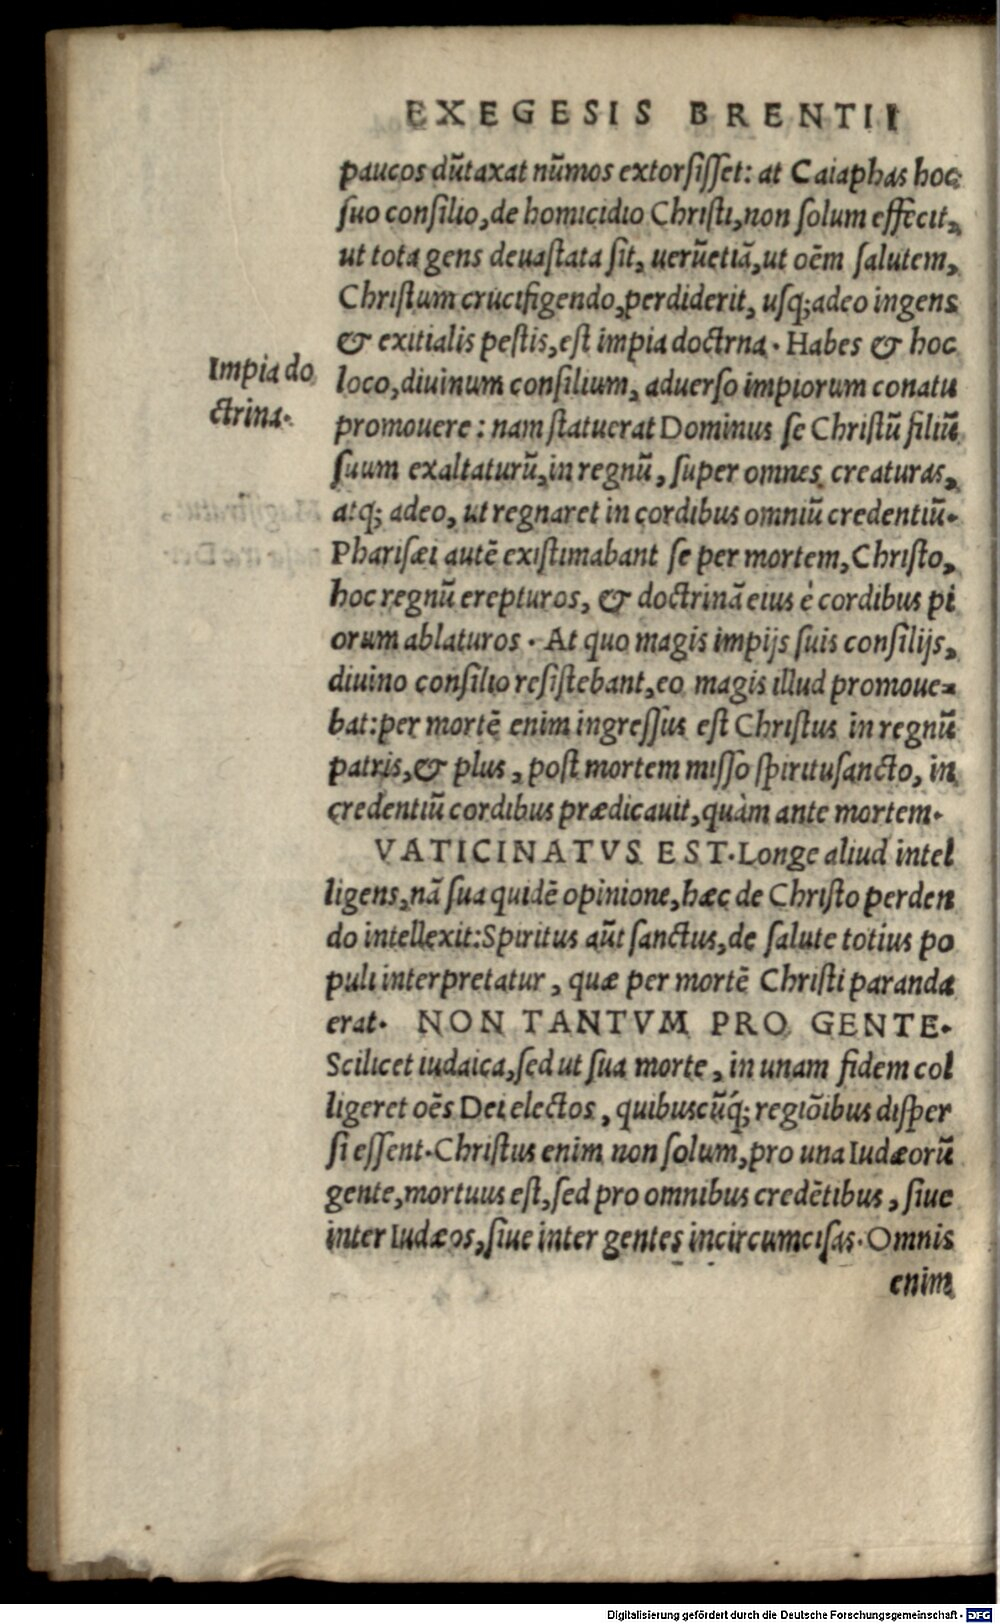 EXEGESIS BRENTII
paucos dūtaxat nūmos extorsisset: at Caiaphas hoc
suo consilio, de homicidio Christi, non solum effecit,
ut tota gens deuastata sit, uerūetiā, ut oēm salutem,
Christum crucifigendo, perdiderit, usq; adeo ingens
& exitialis pestis, est impia doctrna. Habes & hoc
Impia do
ctrina.
loco, diuinum consilium, aduerso impiorum conatu
promouere: nam statuerat Dominus se Christū filiū
suum exaltaturū, in regnū, super omnes creaturas,
atq; adeo, ut regnaret in cordibus omniū credentiū.
Pharisæi autē existimabant se per mortem, Christo,
hoc regnū erepturos, & doctrinā eius è cordibus pi
orum ablaturos. At quo magis impijs suis consilijs,
diuino consilio resistebant, eo magis illud promoue=
bat: per mortē enim ingressus est Christus in regnū
patris, & plus, post mortem misso spiritusancto, in
credentiū cordibus prædicauit, quàm ante mortem.
VATICINATVS EST. Longe aliud intel
ligens, nā sua quidē opinione, hæc de Christo perden
do intellexit: Spiritus aūt sanctus, de salute totius po
puli interpretatur, quæ per mortē Christi paranda
erat. NON TANTVM PRO GENTE.
Scilicet iudaica, sed ut sua morte, in unam fidem col
ligeret oēs Dei electos, quibuscūq́; regiōibus disper
si essent. Christus enim non solum, pro una Iudæorū
gente, mortuus est, sed pro omnibus credētibus, siue
inter Iudæos, siue inter gentes incircumcisas. Omnis
enim
Digitalisierung gefördert durch die Deutsche Forschungsgemeinschaft - DFG